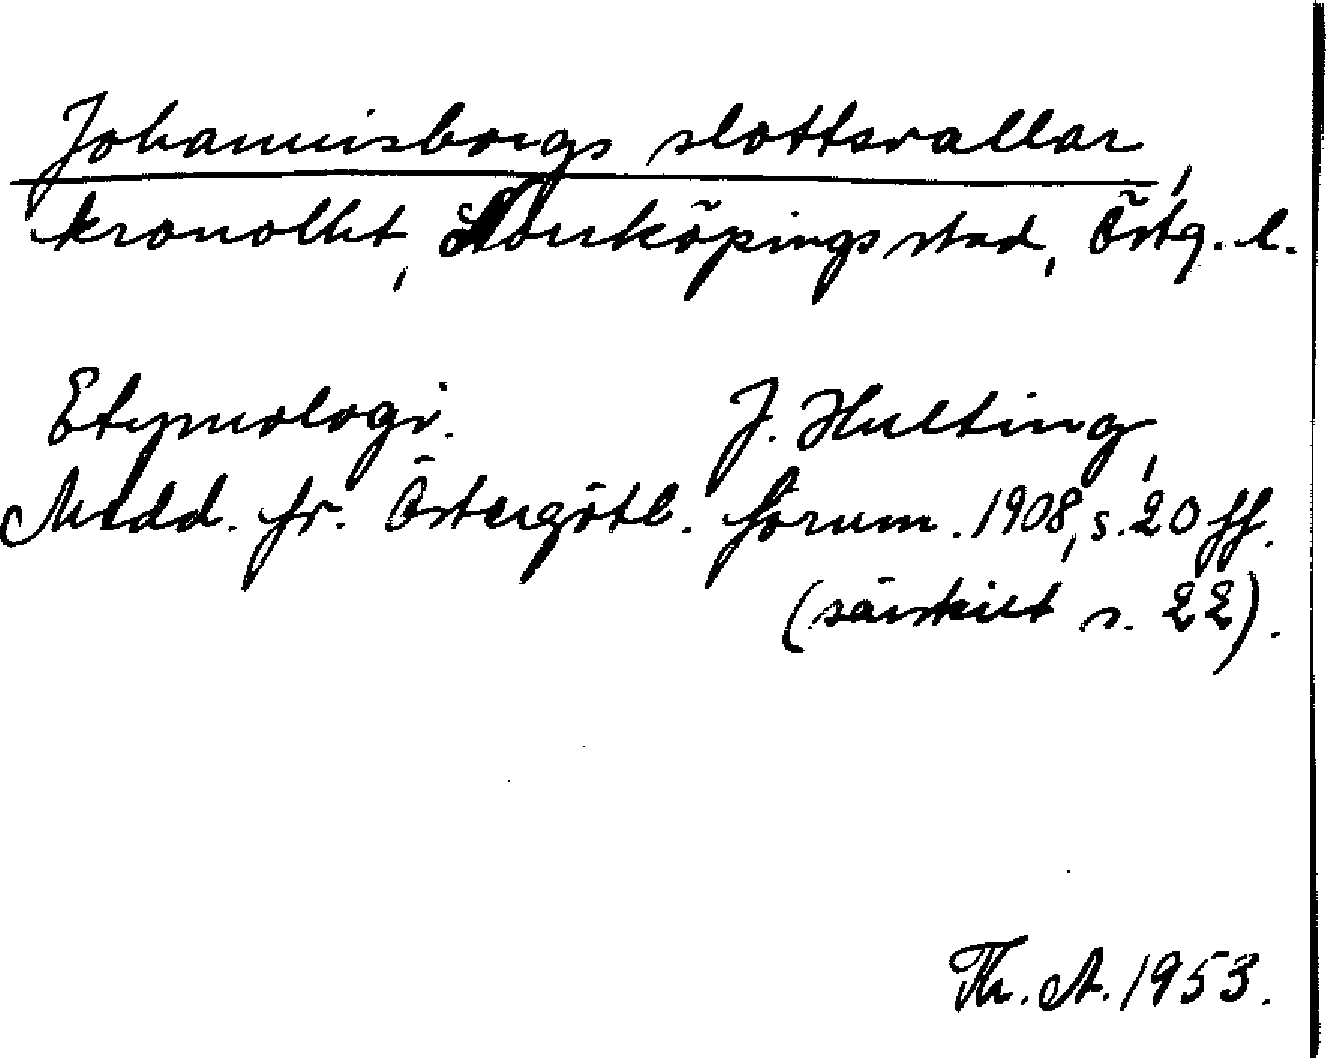 Johannisborgs slottsvallar,
kronolht, Norrköpings stad, Östg. l.
Etymologi. J. Hulting,
Medd. fr. Östergötl. fornm. 1908, s. 20 ff.
(särskilt s. 22).
Th. A. 1953.